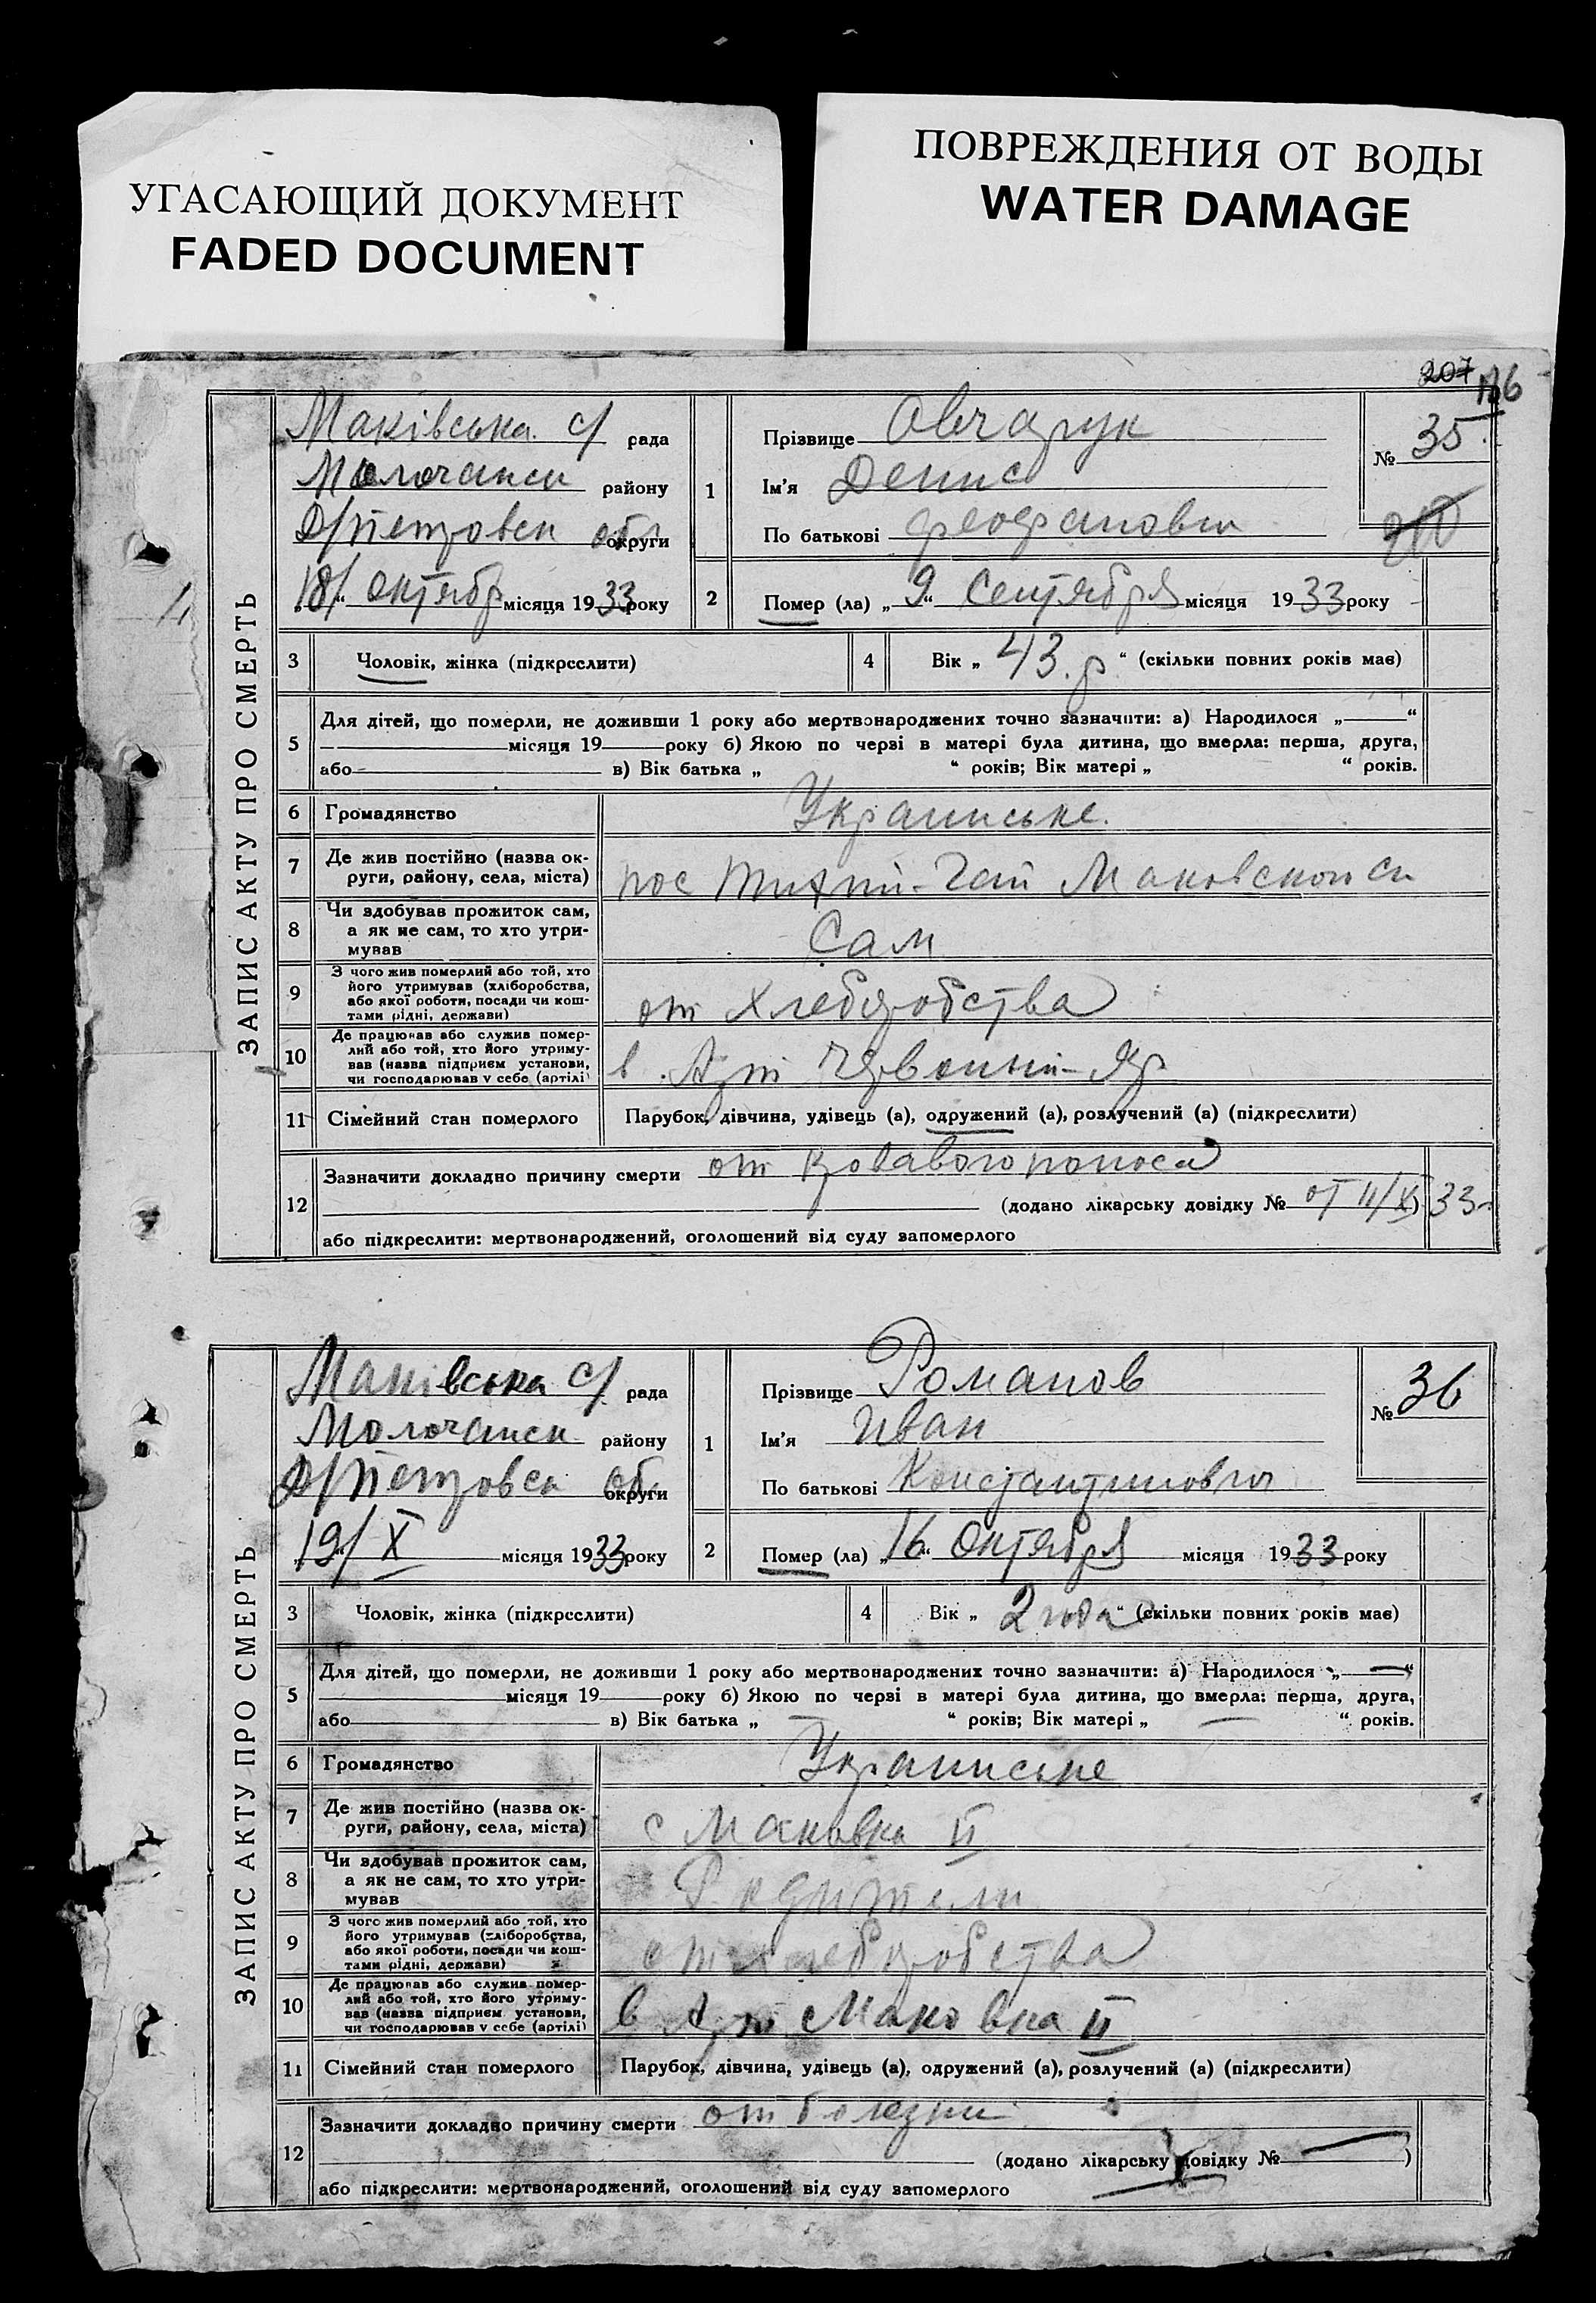 УГАСАЮЩИЙ ДОКУМЕНТ
FADED DOCUMENT
ПОВРЕЖДЕНИЯ ОТ ВОДЫ
WATER DAMAGE
207
ЗАПИС АКТУ ПРО СМЕРТЬ
Маківська с/ рада
Молочанск району
Д/Петровск обл округи
„18/“ октябр місяця 1933 року
1
Прізвище Овчарук
Ім'я Денис
По батькові Феофанович
№ 35
2
Помер (ла) „9“ Сентября місяця 1933 року
3
Чоловік, жінка (підкреслити)
4
Вік „43.р“ (скільки повних років має)
5
Для дітей, що померли, не доживши 1 року або мертвонароджених точно зазначити: а) Народилося „—“
— місяця 19— року б) Якою по черзі в матері була дитина, що вмерла: перша, друга,
або в) Вік батька „ “ років; Вік матері „ “ років.
6
Громадянство
Украинське.
7
Де жив постійно (назва ок-
руги, району, села, міста)
пос Чай Маковской
8
Чи здобував прожиток сам,
а як не сам, то хто утри-
мував
Сам
9
З чого жив померлий або той, хто
його утримував (хліборобства,
або якої роботи, посади чи кош-
тами рідні, держави)
от хлеборобства
10
Де працював або служив помер-
лий або той, хто його утриму-
вав (назва підприєм установи,
чи господарював у себе (артілі)
в Арт Червоний-Яр
11
Сімейний стан померлого
Парубок, дівчина, удівець (а), одружений (а), розлучений (а) (підкреслити)
12
Зазначити докладно причину смерти от кровавого поноса
(додано лікарську довідку № от 11/X) 33
або підкреслити: мертвонароджений, оголошений від суду запомерлого
ЗАПИС АКТУ ПРО СМЕРТЬ
Маківська с/ рада
Молочанск району
Д/Петровск об. округи
„19/“ X місяця 1933 року
1
Прізвище Романов
Ім'я Иван
По батькові Константинович
№ 36
2
Помер (ла) „16“ Октября місяця 1933 року
3
Чоловік, жінка (підкреслити)
4
Вік „2 года“ (скільки повних років має)
5
Для дітей, що померли, не доживши 1 року або мертвонароджених точно зазначити: а) Народилося „—“
місяця 19— року б) Якою по черзі в матері була дитина, що вмерла: перша, друга,
або в) Вік батька „ — “ років; Вік матері „ — “ років.
6
Громадянство
Украинське
7
Де жив постійно (назва ок-
руги, району, села, міста)
с Маковка II
8
Чи здобував прожиток сам,
а як не сам, то хто утри-
мував
Родители
9
З чого жив померлий або той, хто
його утримував (хліборобства,
або якої роботи, посади чи кош-
тами рідні, держави)
от хлеборобства
10
Де працював або служив помер-
лий або той, хто його утриму-
вав (назва підприєм установи,
чи господарював у себе (артілі)
в Арт Маковка II
11
Сімейний стан померлого
Парубок, дівчина, удівець (а), одружений (а), розлучений (а) (підкреслити)
12
Зазначити докладно причину смерти от болезни
(додано лікарську довідку № —)
або підкреслити: мертвонароджений, оголошений від суду запомерлого